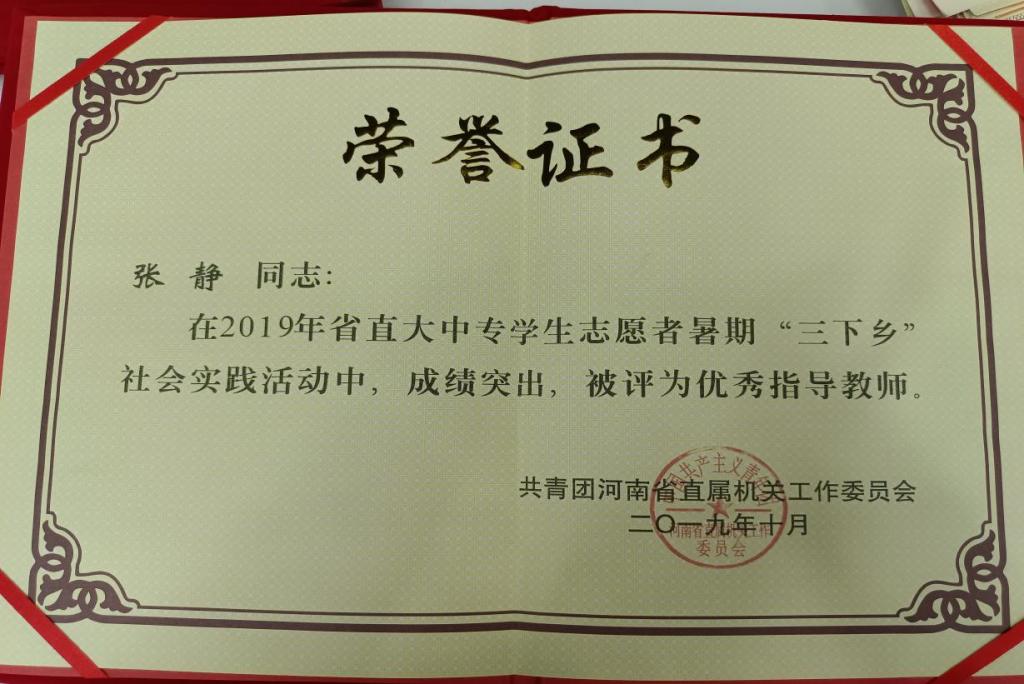 荣誉证书
张 静 同志：
在2019年省直大中专学生志愿者暑期“三下乡”
社会实践活动中，成绩突出，被评为优秀指导教师。
共青团河南省直属机关工作委员会
二〇一九年十月
中国共产主义青年团
河南省直属机关工作
委员会